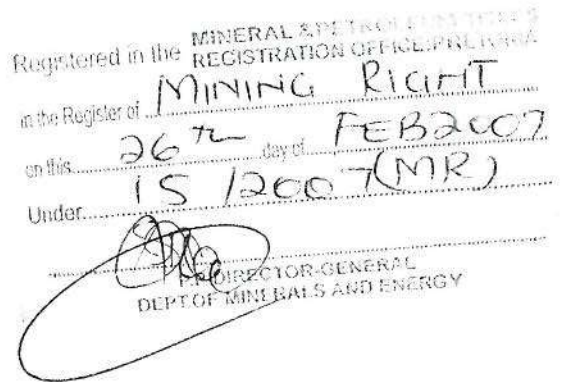 Registered in the MINERAL & PETROLEUM TITLES
REGISTRATION OFFICE: PRETORIA
in the Register of MINING RIGHT
on this 26th day of FEB 2007
Under 15 /2007 (MR)
DIRECTOR-GENERAL
DEPT OF MINERALS AND ENERGY